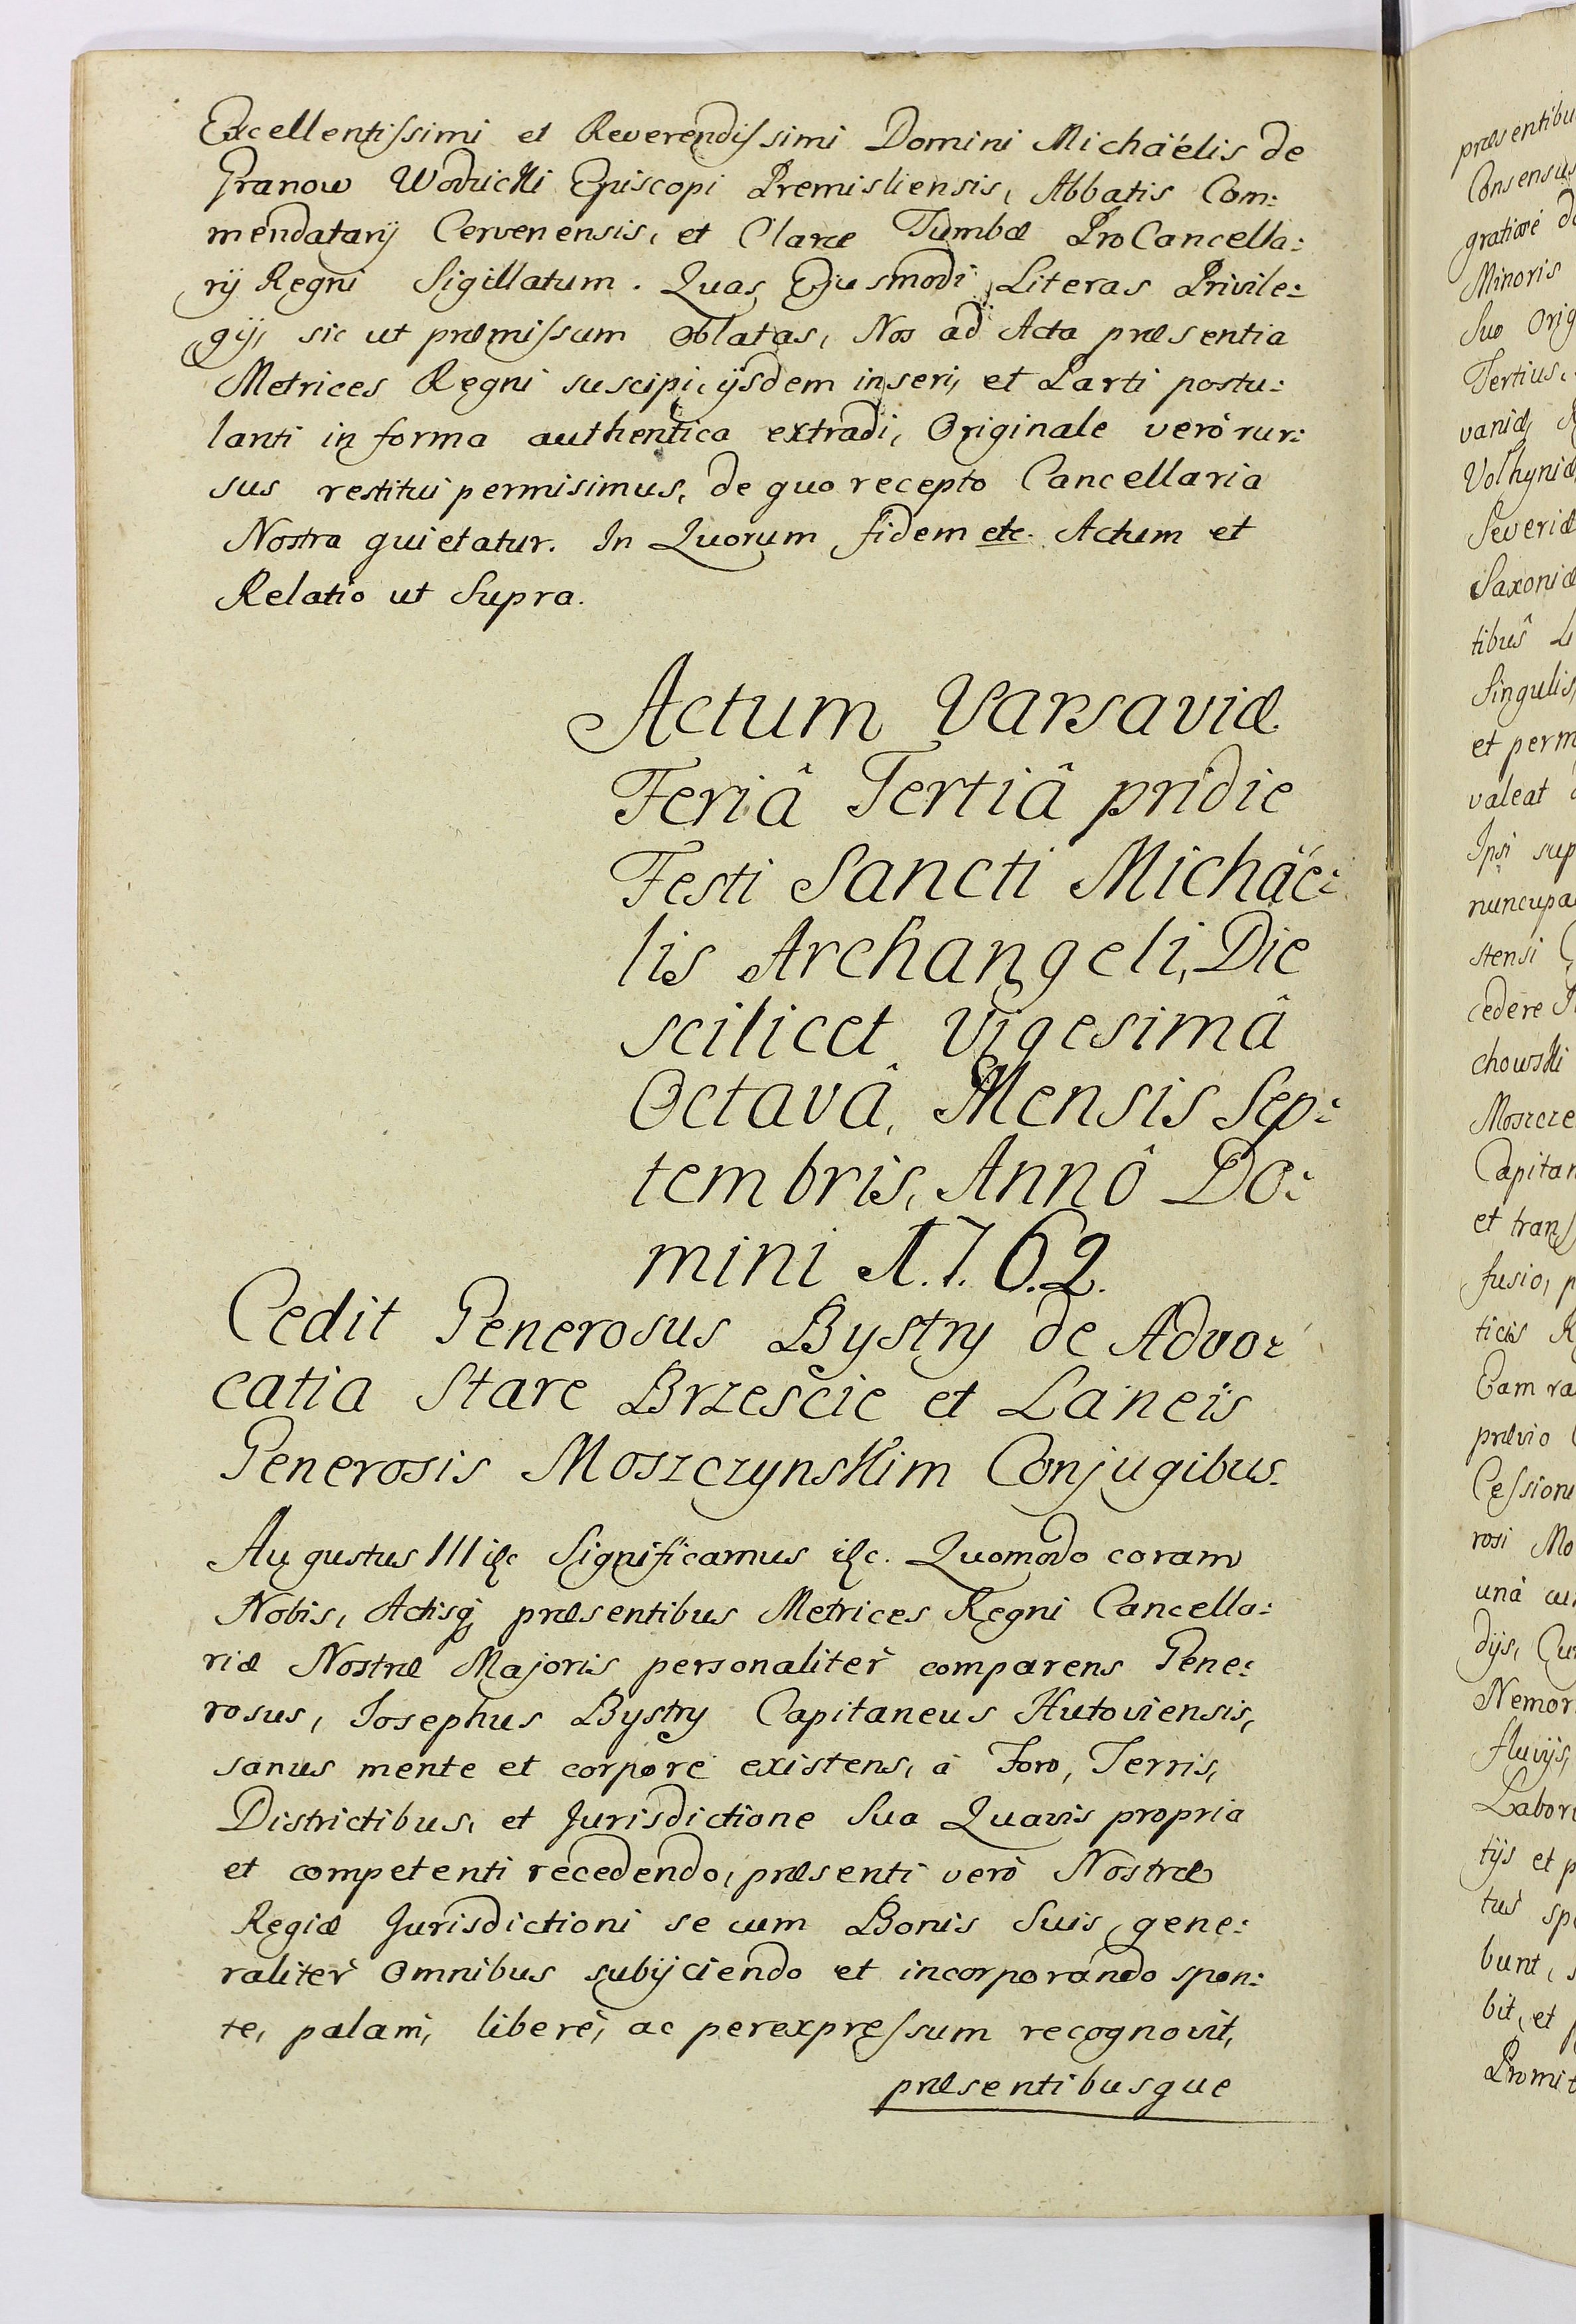 Excellentiſsimi et Reverendiſsimi Domini Michäélis de
Granow Wodzicki Episcopi Premisliensis, Abbatis Com:
mendatarij Cervenensis, et Claræ Tumbæ ProCancella:
rij Regni Sigillatum. Quas Ejusmodi Literas Privile:
gij, sic ut præmiſsum Oblatas, Nos ad Acta præsentia
Metrices Regni suscipi, ijsdem inseri, et Parti postu:
lanti in forma authentica extradi, Originale verò rur:
sus restitui permisimus, de quo recepto Cancellaria
Nostra quietatur. In Quorum fidem etc. Actum et
Relatio ut Supra.
Actum Varsaviæ
Feriâ Tertiâ pridie
Festi Sancti Michäé:
lis Archangeli, Die
scilicet Vigesimâ
Octavâ, Mensis Sep:
tembris, Annô Do:
mini 1.7.6.2.
Cedit Generosus Bystry de Advo:
catia Stare Brzeście et Laneis
Generosis Moszczynskim Conjugibus.
Augustus III etc Significamus etc. Quomodo coram
Nobis, Actisq præsentibus Metrices Regni Cancella:
riæ Nostræ Majoris personalitèr comparens Gene:
rosus, Josephus Bystry Capitaneus Hutoviensis,
sanus mente et corpore existens, à Foro, Terris,
Districtibus, et Jurisdictione Sua Quavis propria
et competenti recedendo, præsenti verò Nostræ
Regiæ Jurisdictioni se cum Bonis Suis gene:
ralitèr Omnibus subijciendo et incorporando spon:
te, palam, liberè, ac perexpreſsum recognovit,
præsentibusque
præsentibu
Consensus
gratiosè
Minoris
Suo Orig
Tertius,
vaniæ,
Volhyniæ
Severiæ
Saxoniæ
tibus
Singulis,
et perm
valeat
Ipsi sup
nuncupa
stensi
cedere
chowski
Moszcze
Capitan
et transf
fusio, p
ticis R
Eam ra
prævio
Ceſsion
rosi Mo
unà cu
dijs, Cu
Nemor
fluvijs,
Labor
tijs et p
tus sp
bunt, s
bit, et
Promit